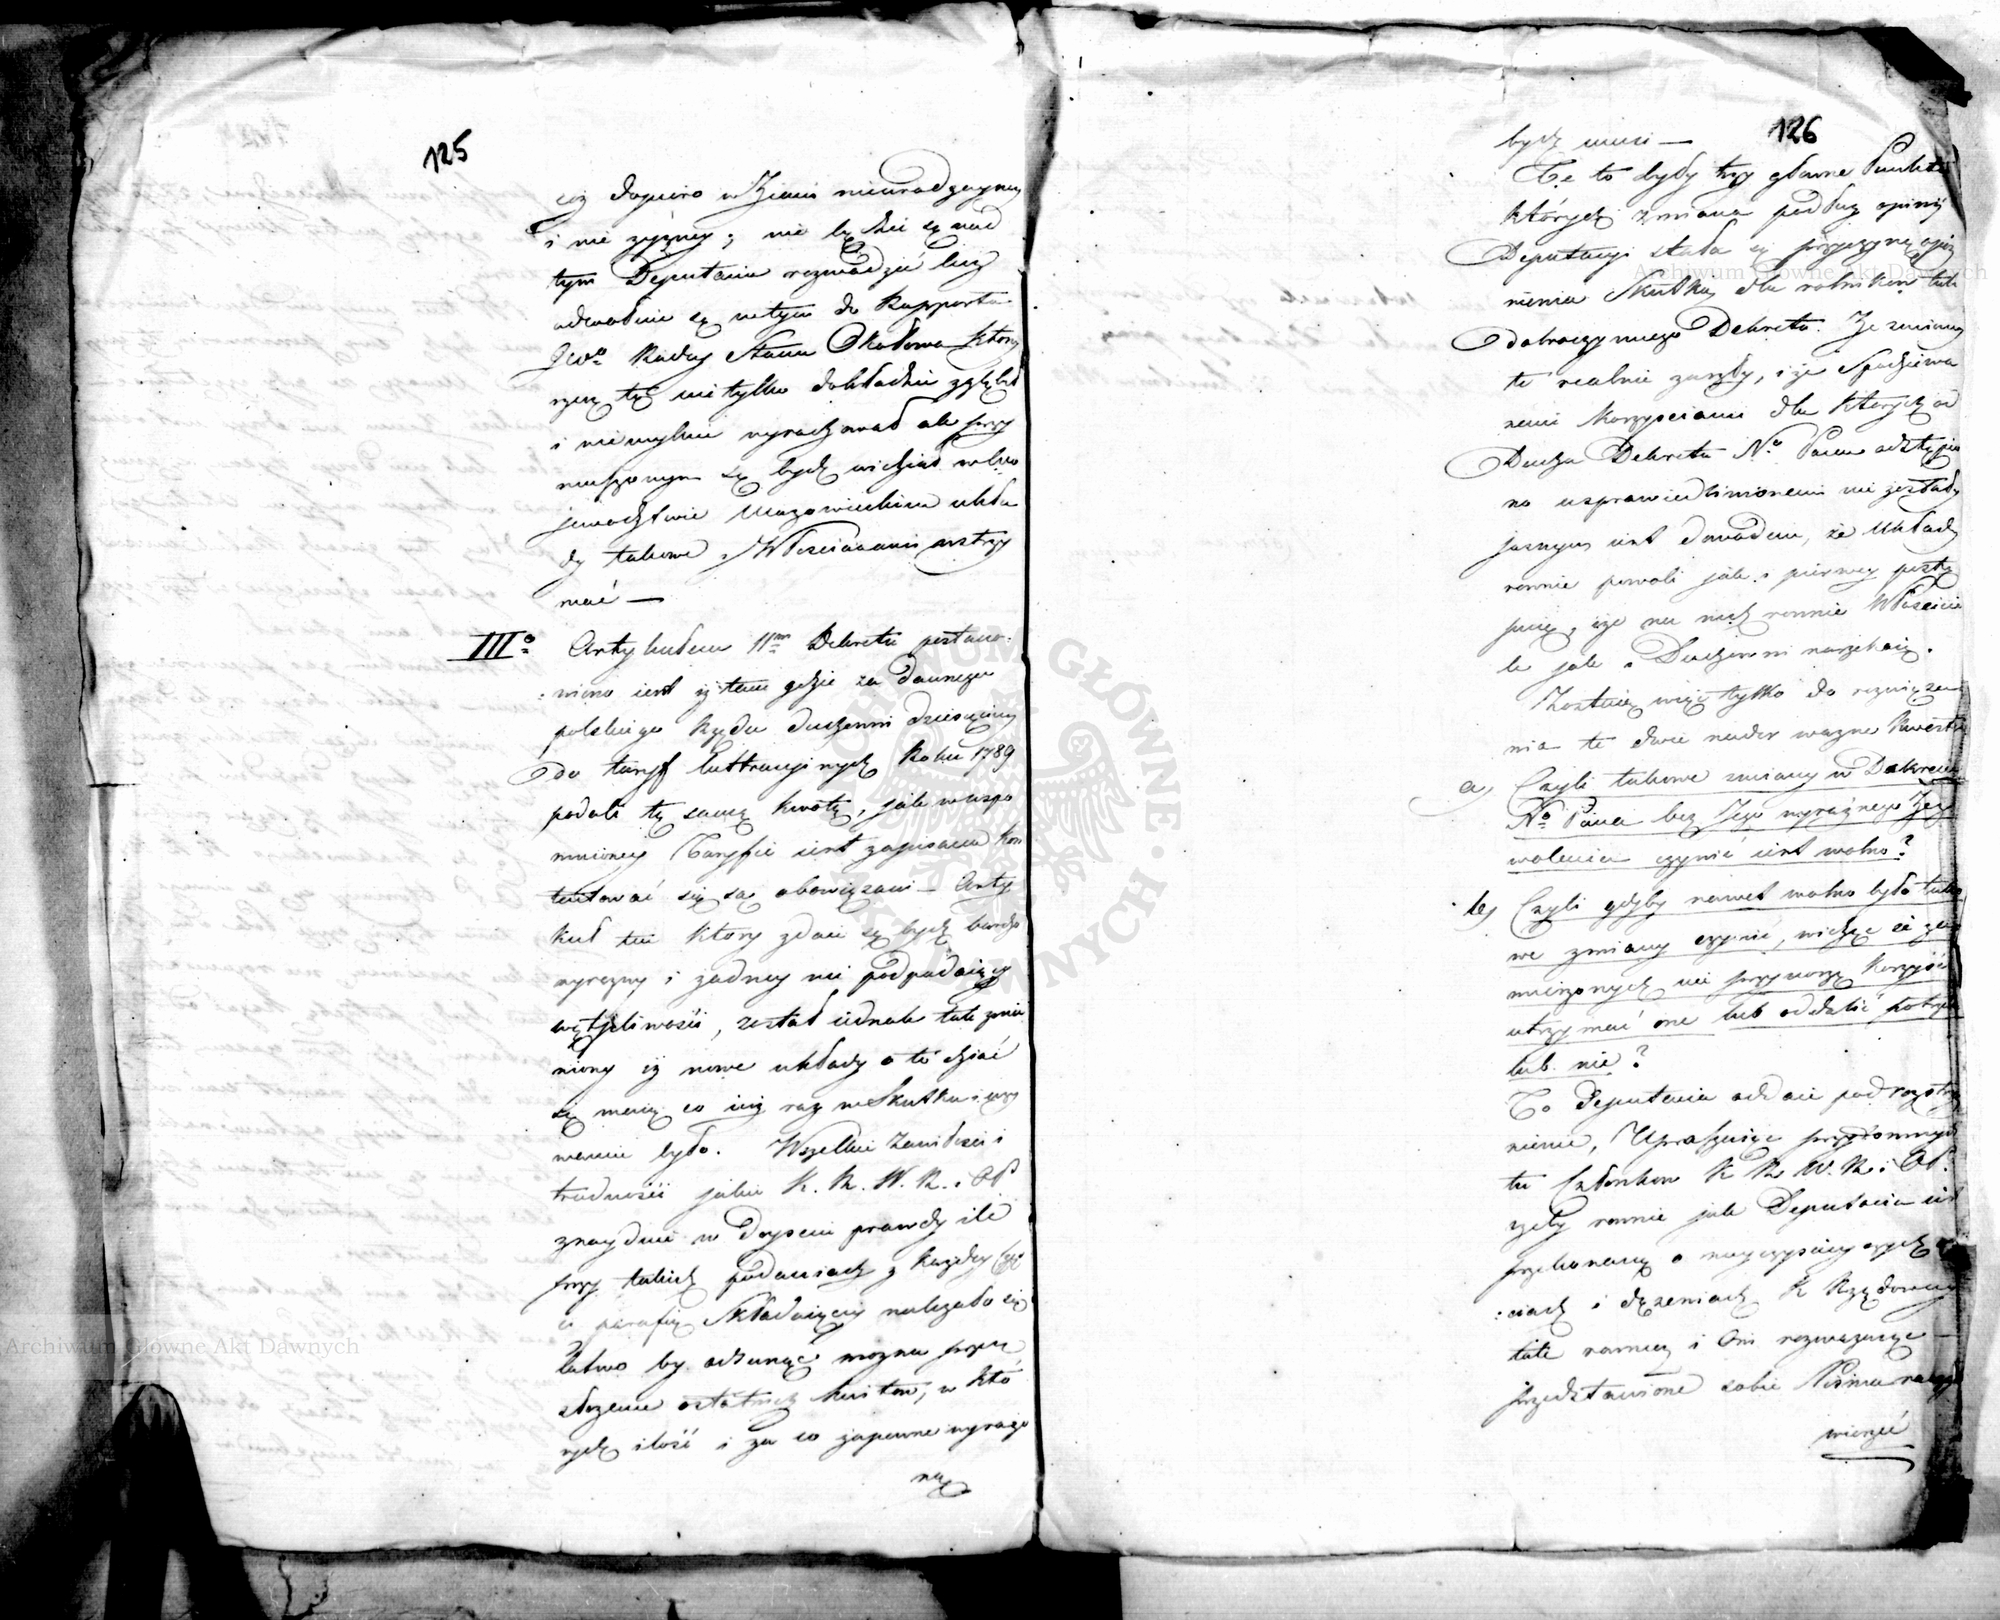 125
cóż dopiero w Ziemi nieurodzayney
i nie żyzney; nie będzie się nad
tym Deputacia rozwodzić lecz
odwołuie się w tym do Rapportu
JWo Radcy Stanu Okołowa który
rzecz tę nie tylko dokładnie zgłębił
i niemylnie wyrachował ale przy
muszonym się bydź widział w Wo
jewodztwie Mazowieckim ukła
dy takowe z Włościanami wstrzy
mać —
IIIo Artykułem 11m Dekretu postano-
wiono iest iż tam gdzie za dawnego
polskiego Rządu duchowni dziesięciny
do taryf lustracyinych Roku 1789
podali tę samą kwotą, jak w wspo
mnioney Taryfie iest zapisana kon
tentować się są obowiązani — Arty
kuł ten który zdaie się bydź bardzo
wyrazny i żadney nie podpadaiący
wątpliwości, został iednak tak zmie
niony iż nowe układy o to dziać
się maią co iuż raz w Skutku i uży
waniu było. Wszelkie zawiłości i
trudności jakie K. R. W. R. i OP
znayduie w doyściu prawdy ile
przy takich podaniach z każdey Czę
ści parafię Składaiącey należało się
łatwo by odsunąć można przez
złożenie ostatnich kwitow, w któ
rych ilość i za co zapewne wyrażo
na
126
bydź musi —
Te to były trzy główne Punkta
których zmiana podług opinij
Deputacyi stała się przyczyną opóz
nienia Skutku dla rolnikow tak
dobroczynnego Dekretu. Że zmiany
te realnie zaszły, i że Spodziewa
nemi korzysciami dla których od
Ducha Dekretu No Pana odstąpio
no usprawiedliwionemi nie zostały
jasnym iest dowodem, że Układy
rownie powoli jak i pierwey postę
puią, że na nich rownie Włościa
nie jak i Duchowni narzekaią.
Zostaią więc tylko do rozwiąza
nia te dwie nader wazne kwestye
a, Czyli takowe zmiany w Dekrecie
No Pana bez Jego wyraźnego Zez
wolenia czynić iest wolno?
b, Czyli gdyby nawet wolno było tako
we zmiany czynić, widząc że za
mierzonych nie przynoszą korzyści
utrzymać one lub oddalić potrzeba
lub nie?
To Deputacia oddaie pod rozstrzy
nienie, Upraszaiąc przytomnych
tu Członkow K R W. R. i OP.
żeby rownie jak Deputacia iest
przekonaną o nayczystszych chę
ciach i dążeniach K Rządowey
tak rownież i Oni rozważaiąc
przedstawione sobie Pisma raczyli
wierzyć